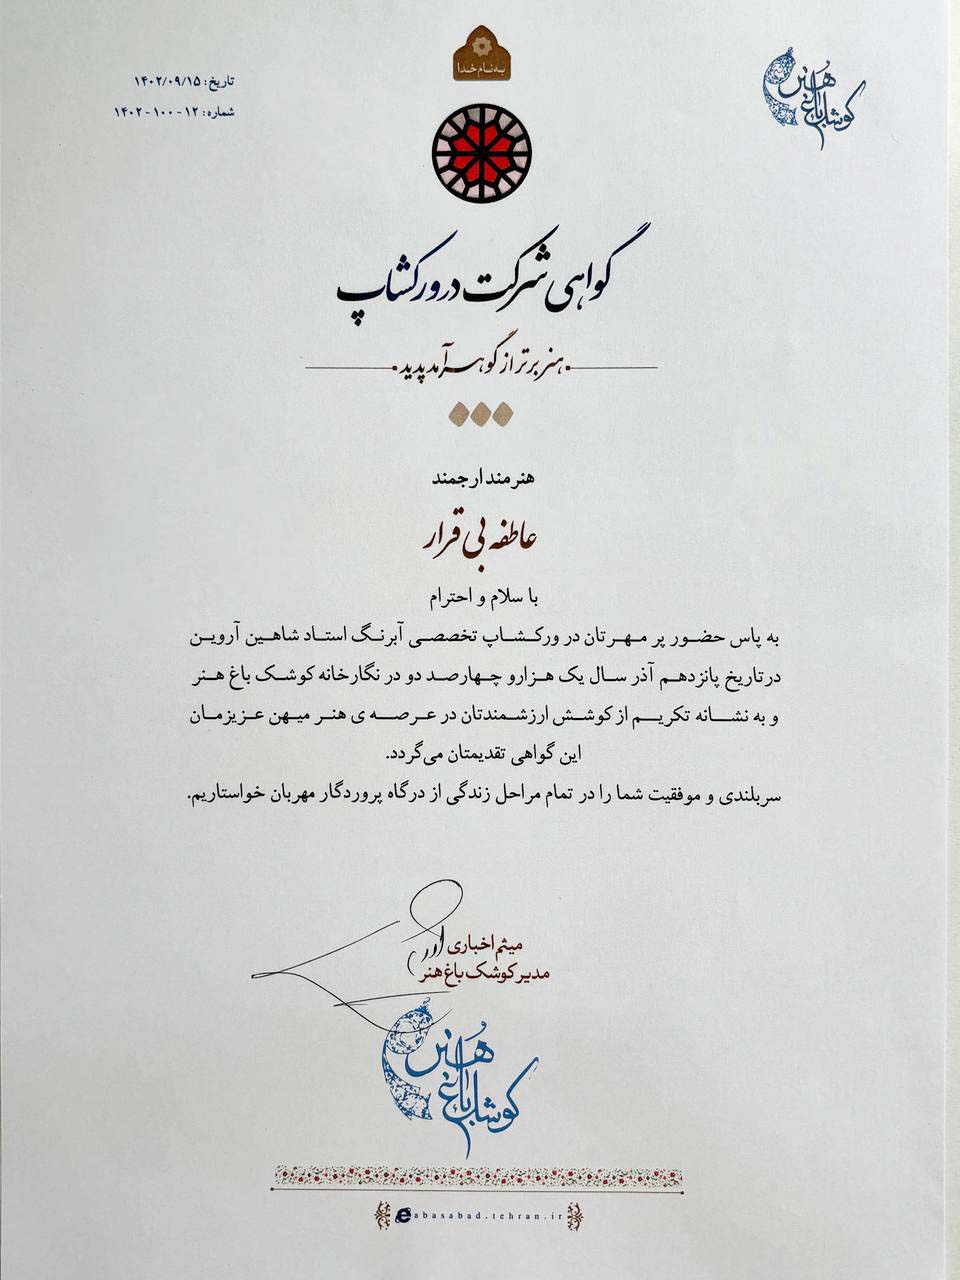 به نام خدا
تاریخ: ۱۴۰۲/۰۹/۱۵
شماره: ۱۲-۱۰۰-۱۴۰۲
کوشک باغ هنر
گواهی شرکت در ورکشاپ
هنر برتر از گوهر آمد پدید
هنرمند ارجمند
عاطفه بی قرار
با سلام و احترام
به پاس حضور پر مهرتان در ورکشاپ تخصصی آبرنگ استاد شاهین آروین
در تاریخ پانزدهم آذر سال یک هزار و چهارصد دو در نگارخانه کوشک باغ هنر
و به نشانه تکریم از کوشش ارزشمندتان در عرصه ی هنر میهن عزیزمان
این گواهی تقدیمتان می‌گردد.
سربلندی و موفقیت شما را در تمام مراحل زندگی از درگاه پروردگار مهربان خواستاریم.
میثم اخباری
مدیر کوشک باغ هنر
کوشک باغ هنر
abasabad.tehran.ir